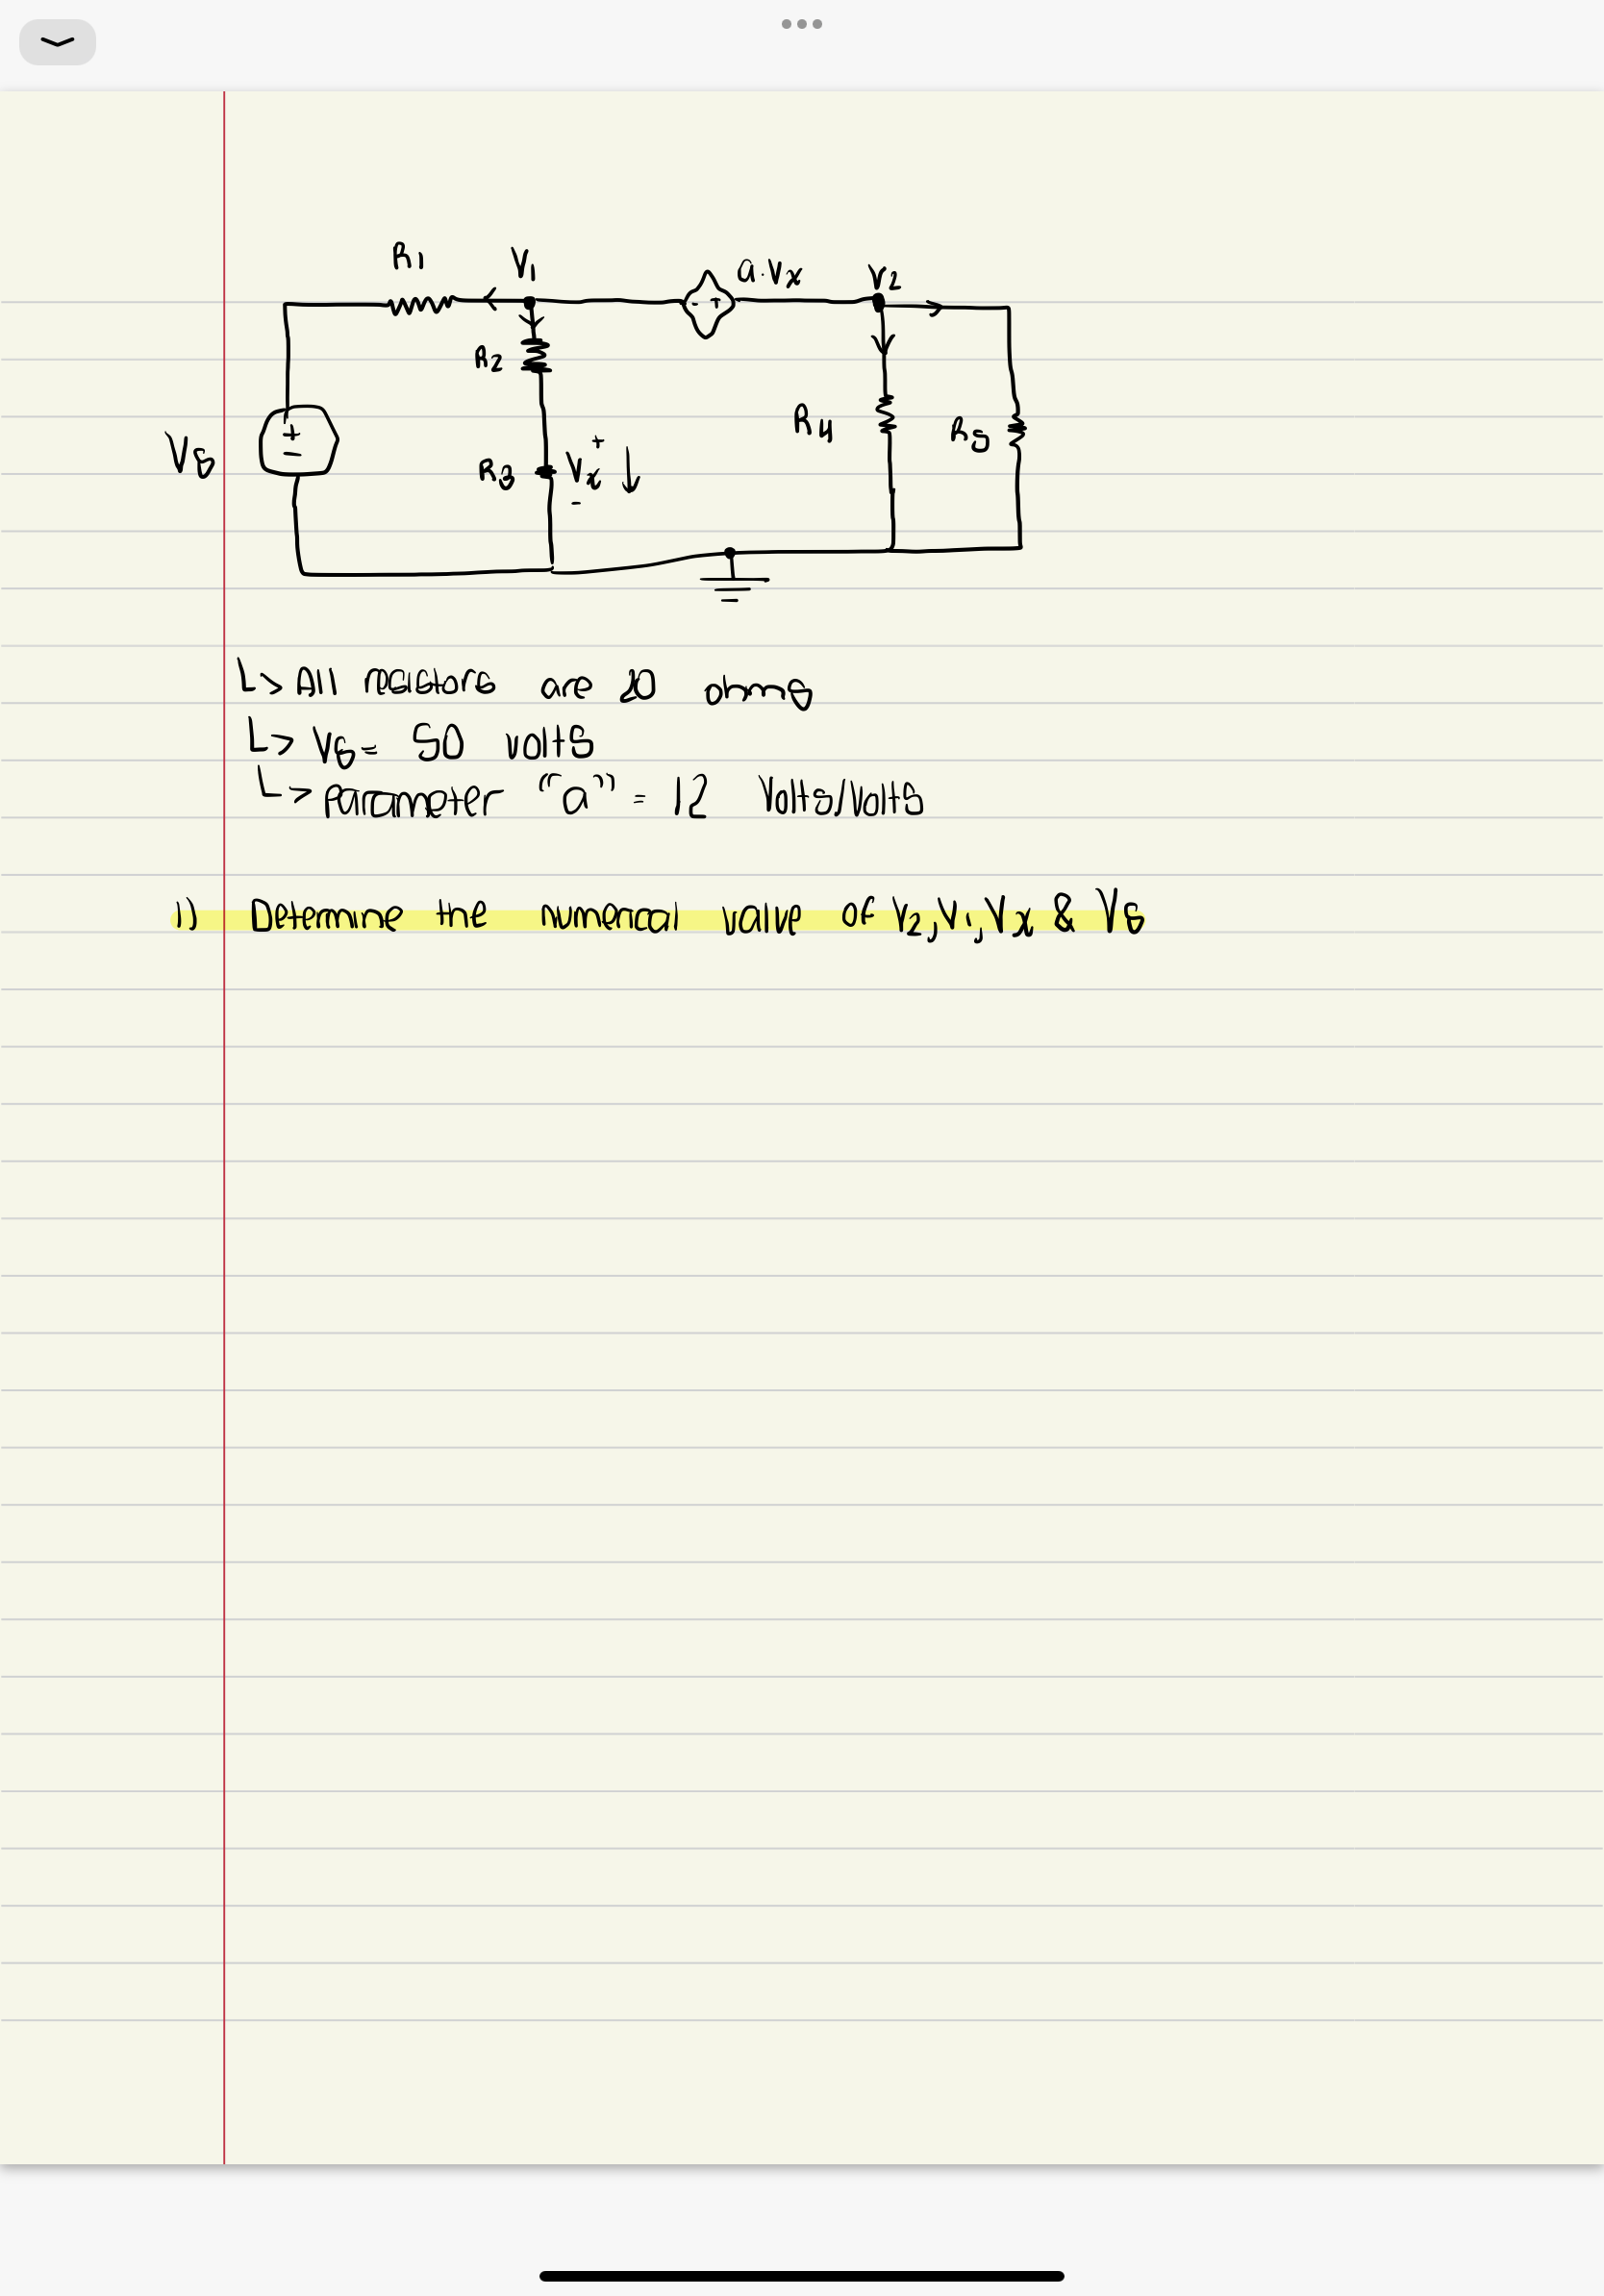 R1 V1 a.Vx V2
R2
Vs + - R3 Vx + - R4 R5
↳ All resistors are 20 ohms
↳ Vs = 50 volts
↳ parameter "a" = 12 Volts/Volts
1) Determine the numerical value of V2, V1, Vx & Vs